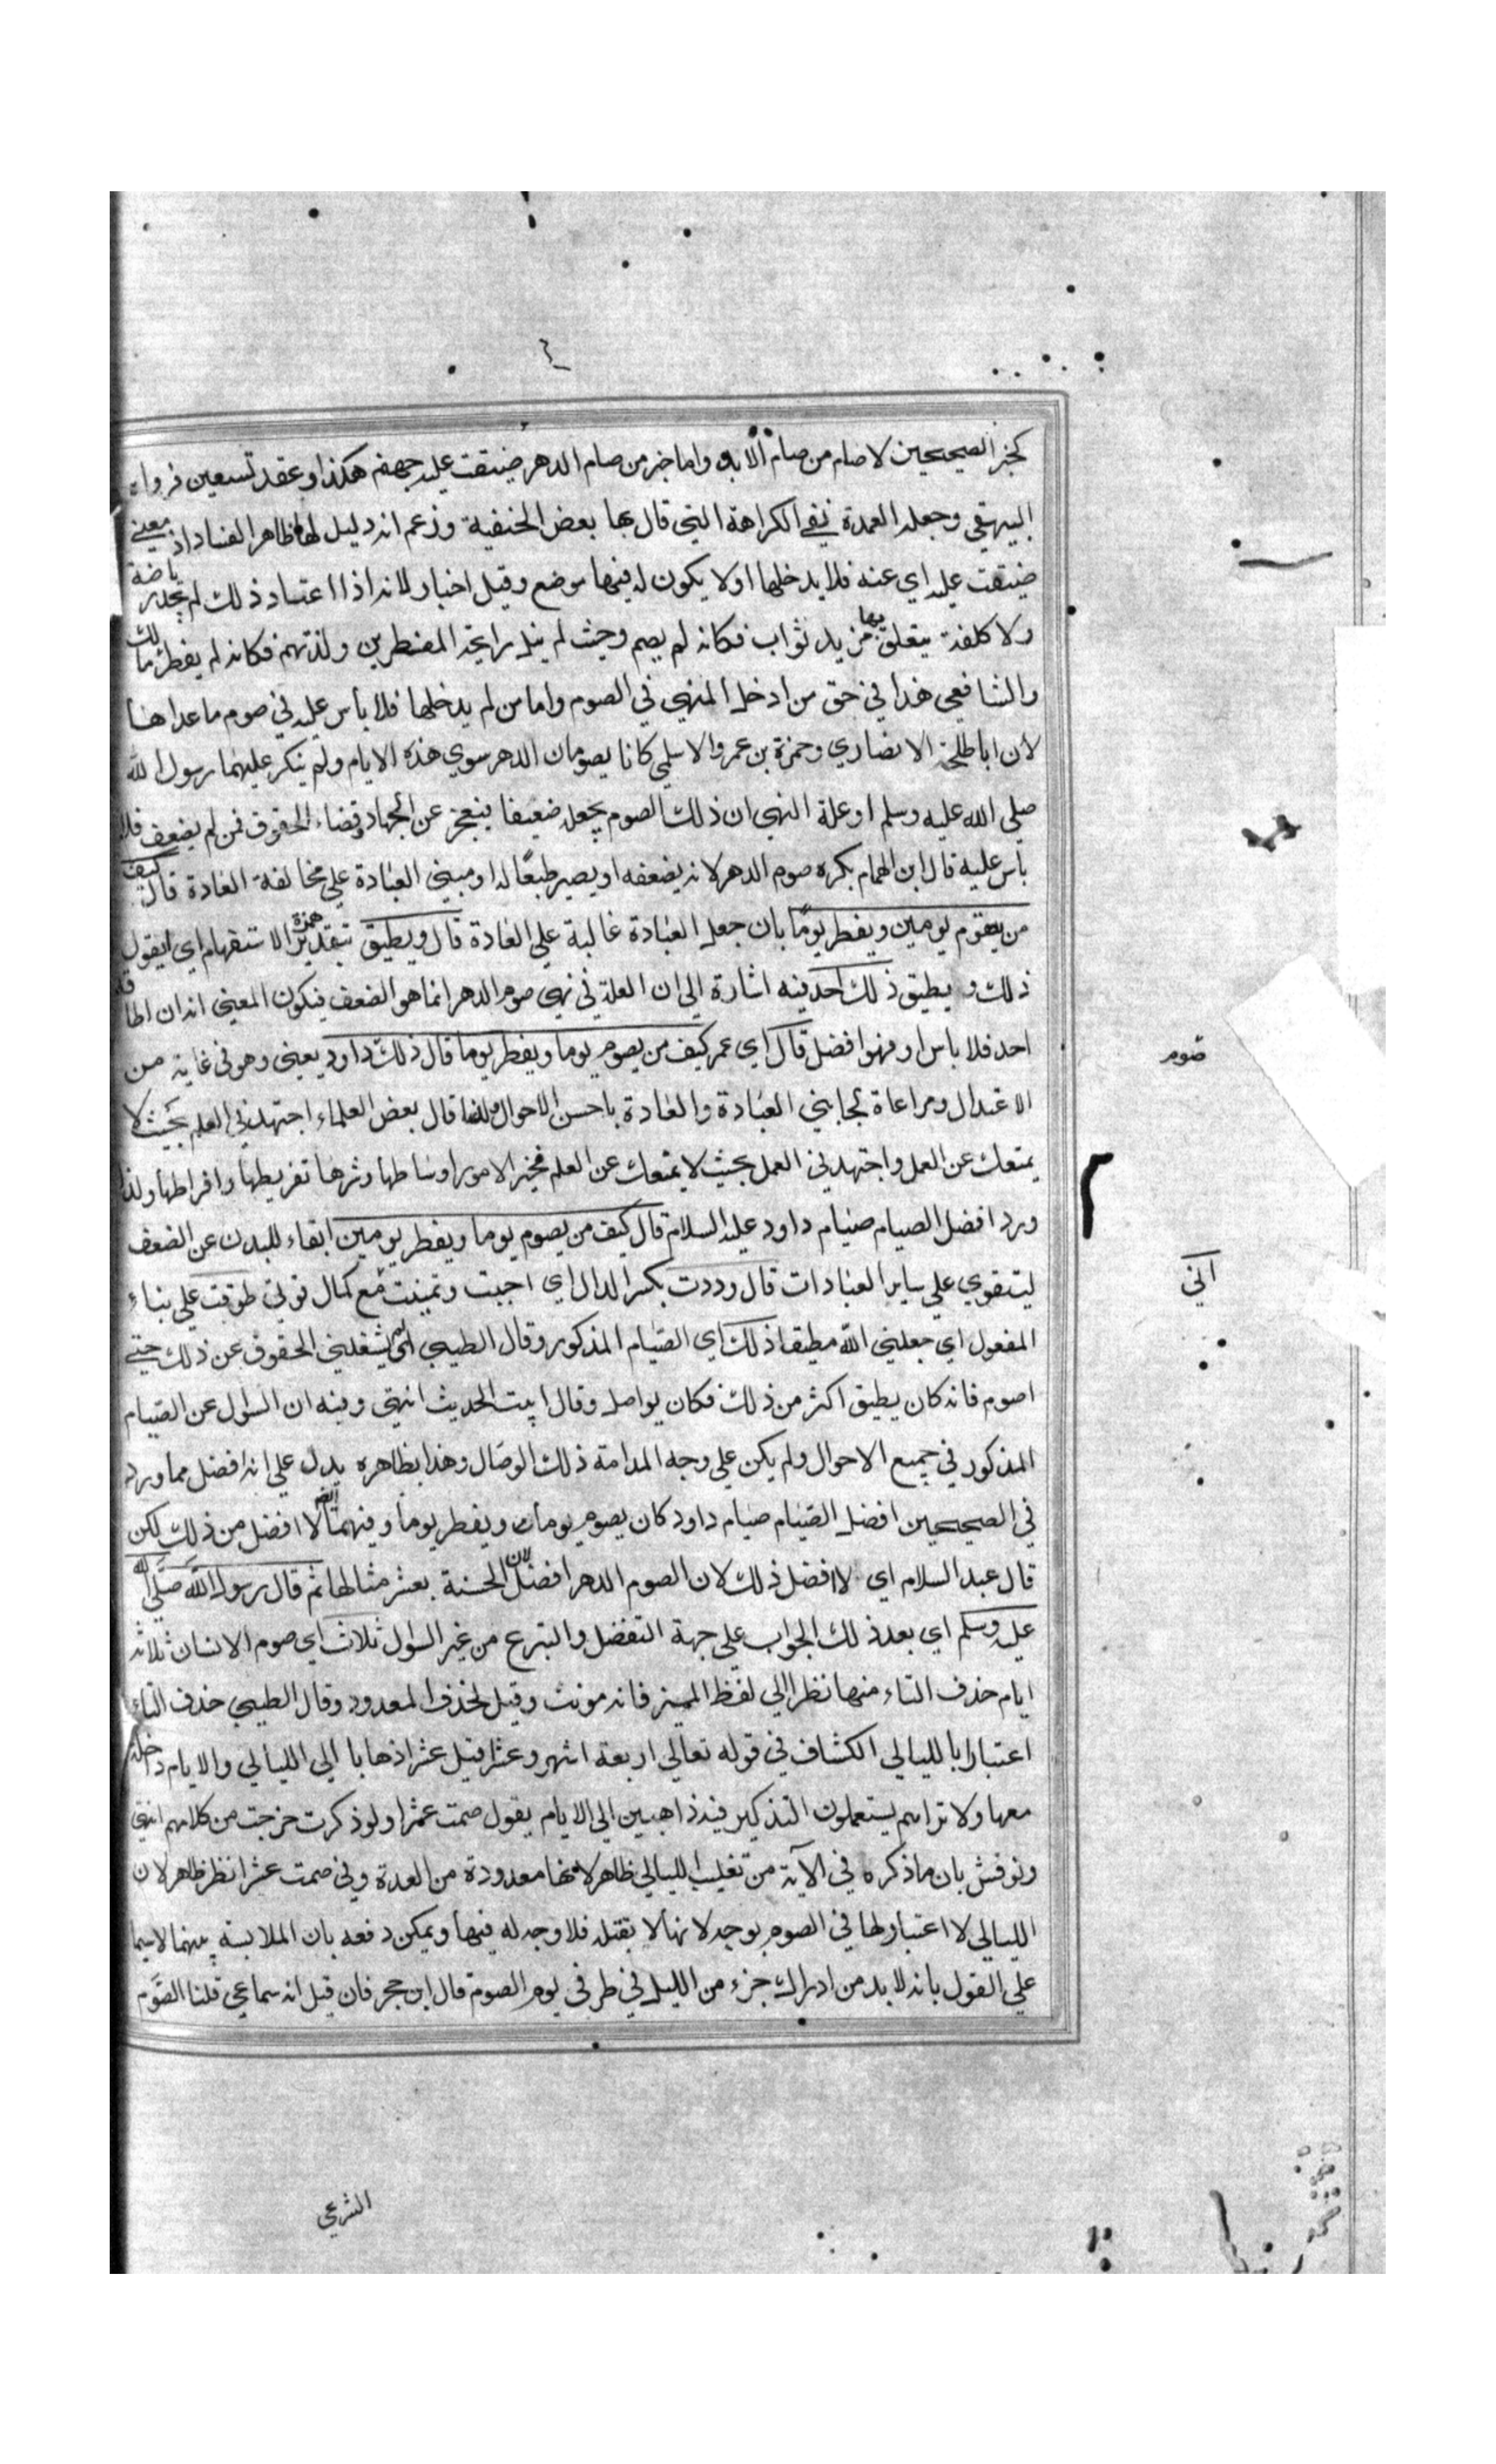 كخبر الصحيحين لا صام من صام الابد واما خبر من صام الدهر ضيقت عليه جهنم هكذا وعقد تسعين فرواه
البيهقي وجعله العمدة نفي الكراهة التي قال بها بعض الحنفية وزعم انه دليل لها ظاهر الفساد اذ معني
ضيقت عليه اي عنه فلا يدخلها او لا يكون له فيها موضع وقيل اخبار لانه اذا اعتاد ذلك لم يجد رياضة
ولا كلفة يتعلق بها مزيد ثواب فكانه لم يصم وحيث لم ينل راحة المفطرين ولذتهم فكانه لم يفطر مالك
والشافعي هذا في حق من ادخل المنهي في الصوم واما من لم يدخلها فلا باس عليه في صوم ما عداها
لان ابا طلحة الانصاري وحمزة بن عمرو الاسلمي كانا يصومان الدهر سوي هذه الايام ولم ينكر عليهما رسول الله
صلي الله عليه وسلم او علة النهي ان ذلك الصوم يجعله ضعيفا فيعجز عن الجهاد وقضاء الحقوق فمن لم يضعف فلا
باس عليه قال ابن الهمام يكره صوم الدهر لانه يضعفه او يصير طبعا له ومبني العبادة علي مخالفة العادة قال كيف
من يصوم يومين ويفطر يوما بان جعل العبادة غالبة علي العادة قال ويطيق بتقدير همزة الاستفهام اي ايقول
ذلك ويطيق ذلك احد فيه اشارة الي ان العلة في نهي صوم الدهر انما هو الضعف فيكون المعني انه ان اطاقه
احد فلا باس او فهو افضل قال اي عمر كيف من يصوم يوما ويفطر يوما قال ذلك داود يعني وهو في غاية من
الاعتدال ومراعاة لجانبي العبادة والعادة باحسن الاحوال ولذا قال بعض العلماء اجتهد في العلم بحيث لا
يمنعك عن العمل واجتهد في العمل بحيث لا يمنعك عن العلم فخير الامور اوساطها وشرها تفريطها وافراطها ولذا
ورد افضل الصيام صيام داود عليه السلام قال كيف من يصوم يوما ويفطر يومين ابقاء للبدن عن الضعف
ليتقوي علي ساير العبادات قال وددت بكسر الدال اي احببت وتمنيت مع كمال قوتي طوقت علي بناء
المفعول اي جعلني الله مطيقا ذلك اي الصيام المذكور وقال الطيبي اي لم يشغلني الحقوق عن ذلك حتي
اصوم فانه كان يطيق اكثر من ذلك فكان يواصل وقال ابيت الحديث انتهي وفيه ان السوال عن الصيام
المذكور في جميع الاحوال ولم يكن علي وجه المدامة ذلك الوصال وهذا بظاهره يدل علي انه افضل مما ورد
في الصحيحين افضل الصيام صيام داود كان يصوم يوما ويفطر يوما وفيهما ايضا لا افضل من ذلك لكن
قال عبد السلام اي لا افضل ذلك لان الصوم الدهر افضل لان الحسنة بعشر مثالها ثم قال رسول الله صلي الله
عليه وسلم اي بعد ذلك الجواب علي جهة التفضل والتبرع من غير السوال ثلاث اي صوم الانسان ثلاثة
ايام حذف التاء منها نظرا الي لفظ المميز فانه مونث وقيل لحذف المعدود وقال الطيبي حذف التاء
اعتبارا بالليالي الكشاف في قوله تعالي اربعة اشهر وعشرا قيل عشرا ذهابا الي الليالي والايام داخلة
معها ولا تراهم يستعملون التذكير فيه ذاهبين الي الايام يقول صمت عشرا ولو ذكرت خرجت من كلامهم انتهي
ونوقش بان ما ذكره في الآية من تغليب الليالي ظاهر لانها معدودة من العدة وفي صمت عشرا نظر ظاهر لان
الليالي لا اعتبار لها في الصوم بوجه لانها لا يقبله فلا وجه له فيها ويمكن دفعه بان الملابسة بينهما لا سيما
علي القول بانه لا بد من ادراك جزء من الليل في طرفي يوم الصوم قال ابن حجر فان قيل انه سماعي قلنا الصوم
صوم
اني
الشرعي